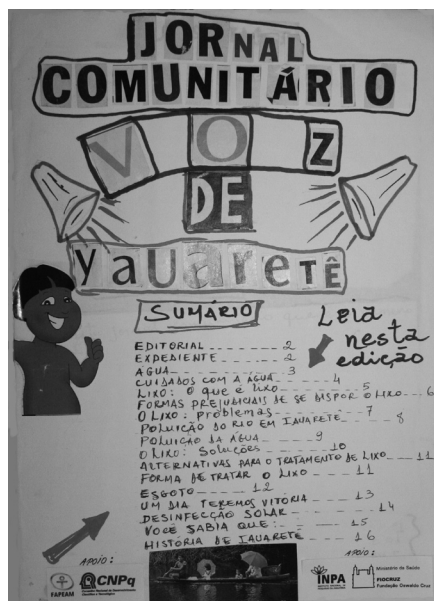 JORNAL
COMUNITÁRIO
VOZ
DE
YAUARETÊ
SUMÁRIO
Leia
nesta
edição
EDITORIAL 2
EXPEDIENTE 2
ÁGUA 3
CUIDADOS COM A ÁGUA 4
LIXO: O QUE É LIXO 5
FORMAS PREJUDICIAIS DE SE DISPOR O LIXO 6
O LIXO: Problemas 7
POLUIÇÃO DO RIO EM IAUARETE 8
POLUIÇÃO DA ÁGUA 9
O LIXO: Soluções 10
ALTERNATIVAS PARA O TRATAMENTO DE LIXO 11
FORMA DE TRATAR O LIXO 11
ESGOTO 12
UM DIA TEREMOS VITÓRIA 13
DESINFECÇÃO SOLAR 14
VOCÊ SABIA QUE: 15
HISTÓRIA DE IAUARETE 16
APOIO:
APOIO:
FAPEAM
CNPq
Conselho Nacional de Desenvolvimento
Científico e Tecnológico
INPA
Ministério da Saúde
FIOCRUZ
Fundação Oswaldo Cruz